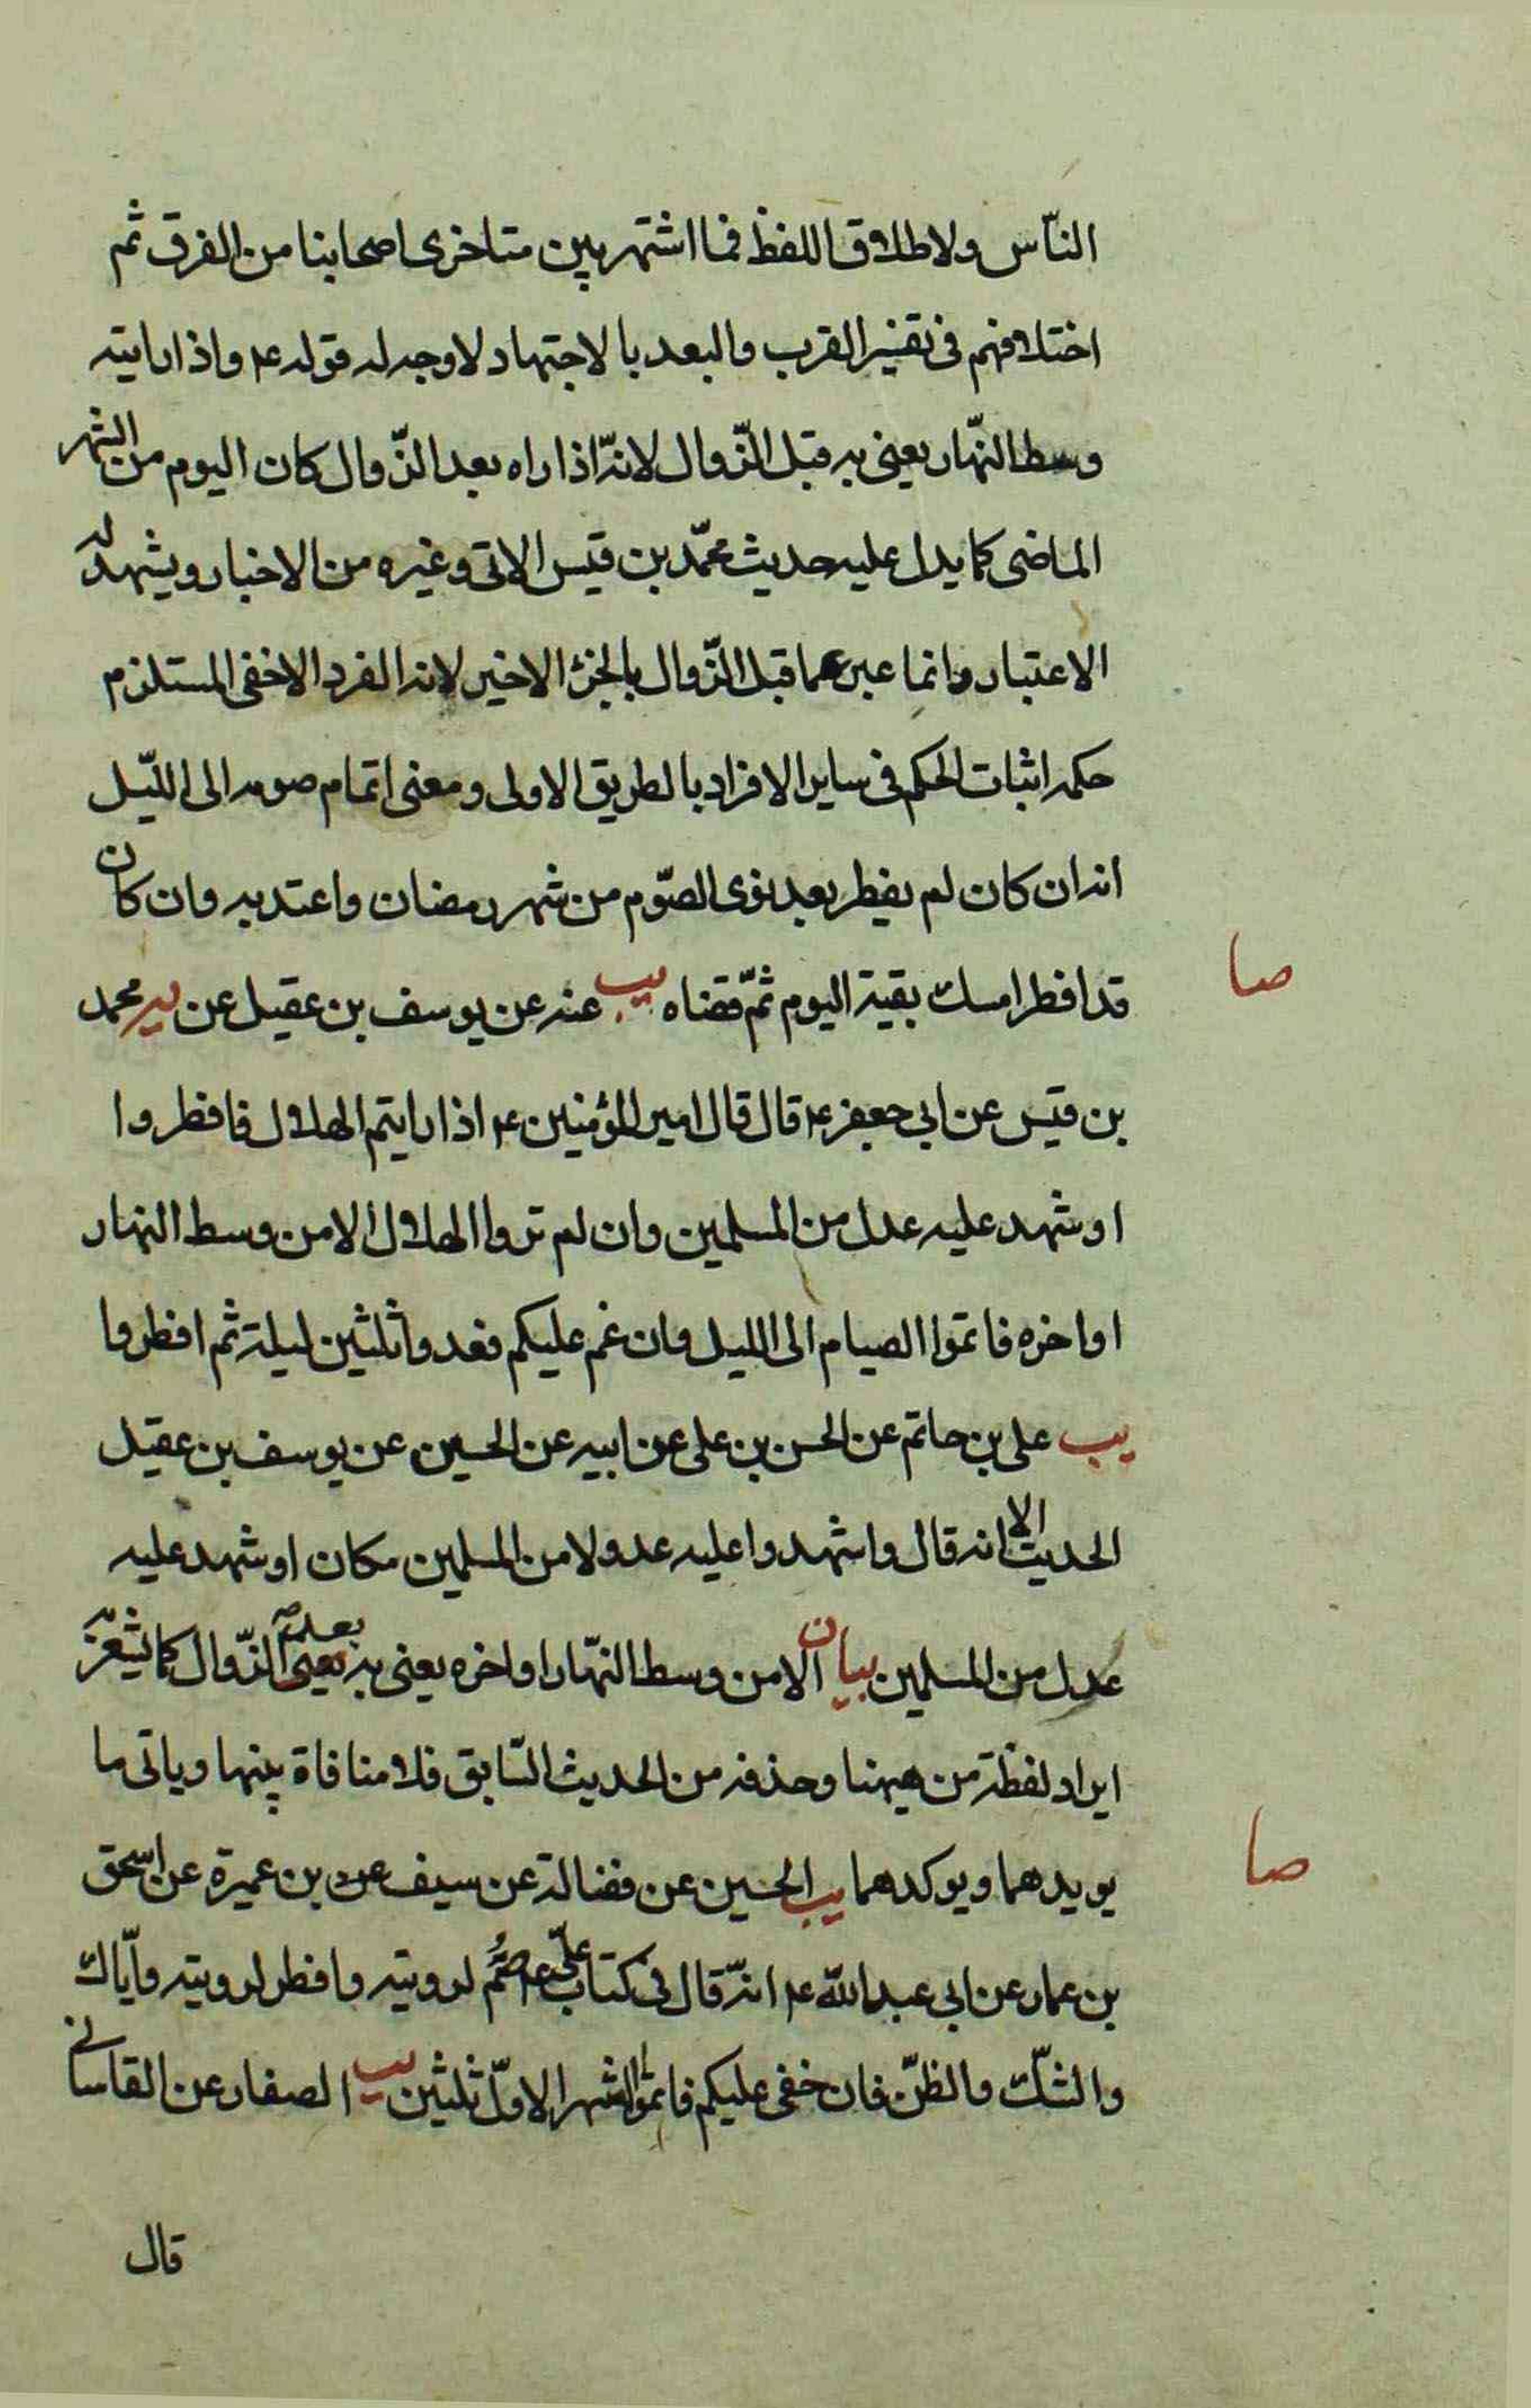 الناّس ولاطلاق اللفظ فما اشتهر بين متاخرى اصحابنا من الفرق ثم
اختلافهم فى تفسير القرب والبعد بالاجتهاد لاوجه له قوله ع واذا رايته
وسط النهّار يعنى به قبل الزّوال لانهّ اذا راه بعد الزّوال كان اليوم من الشهر
الماضى كما يدل عليه حديث محمّد بن قيس الاتى وغيره من الاخبار ويشهد له
الاعتبار وانما عبر عما قبل الزّوال بالجزء الاخير لانه الفرد الاخفى المستلزم
حكمه اثبات الحكم فى ساير الافراد بالطريق الاولى ومعنى اتمام صومه الى اللّيل
انه ان كان لم يفطر بعد نوى الصّوم من شهر رمضان واعتد به وان كان
صا
قد افطر امسك بقية اليوم ثمّ قضاه يب عنه عن يوسف بن عقيل عن محمد
بن قيس عن ابى جعفر ع قال قال امير المؤمنين ع اذا رايتم الهلال فافطروا
او شهد عليه عدل من المسلمين وان لم تروا الهلال الا من وسط النهار
او اخره فاتموا الصيام الى الليل وان غم عليكم فعدوا ثلثين ليلة ثم افطروا
يب على بن حاتم عن الحسن بن على عن ابيه عن الحسين عن يوسف بن عقيل
الحديث الا انه قال واشهدوا عليه عدولا من المسلمين مكان او شهد عليه
عدل من المسلمين بيان الا من وسط النهّار او اخره يعنى به بعد الزّوال كما يشعر به
ايراد لفظة من هيهنا وحذفه من الحديث السّابق فلا منافاة بينهما وياتى ما
صا
يويدهما ويوكدهما يب الحسين عن فضالة عن سيف بن عميرة عن اسحق
بن عمار عن ابى عبد الله ع انهّ قال فى كتاب علىّ ع صم لرويته وافطر لرويته واياّك
والشّك والظنّ فان خفى عليكم فاتموا الشهر الاوّل ثلثين يب الصفار عن القاسانى
قال